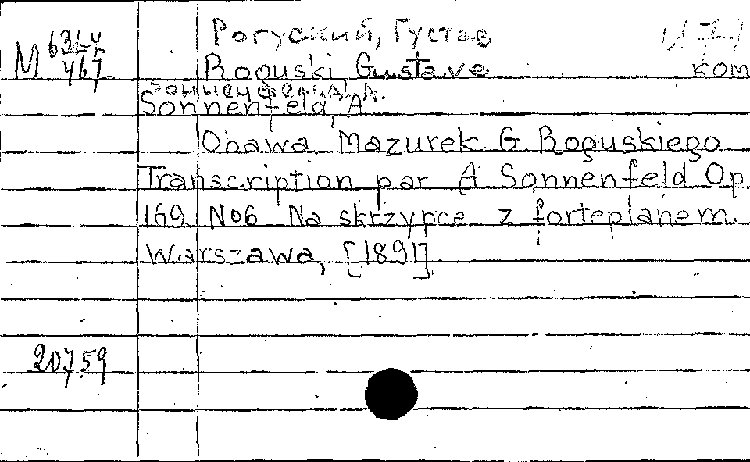 Рогуский, Густав
M 63Lv/467 Roguski Gustave ком
Зонненфельд, А.
Sonnenfeld, A
Obawa Mazurek G. Roguskiego
Transcription par A Sonnenfeld Op.
169 No6 Na skrzypce z fortepianem.
Warszawa, [1891].
20759